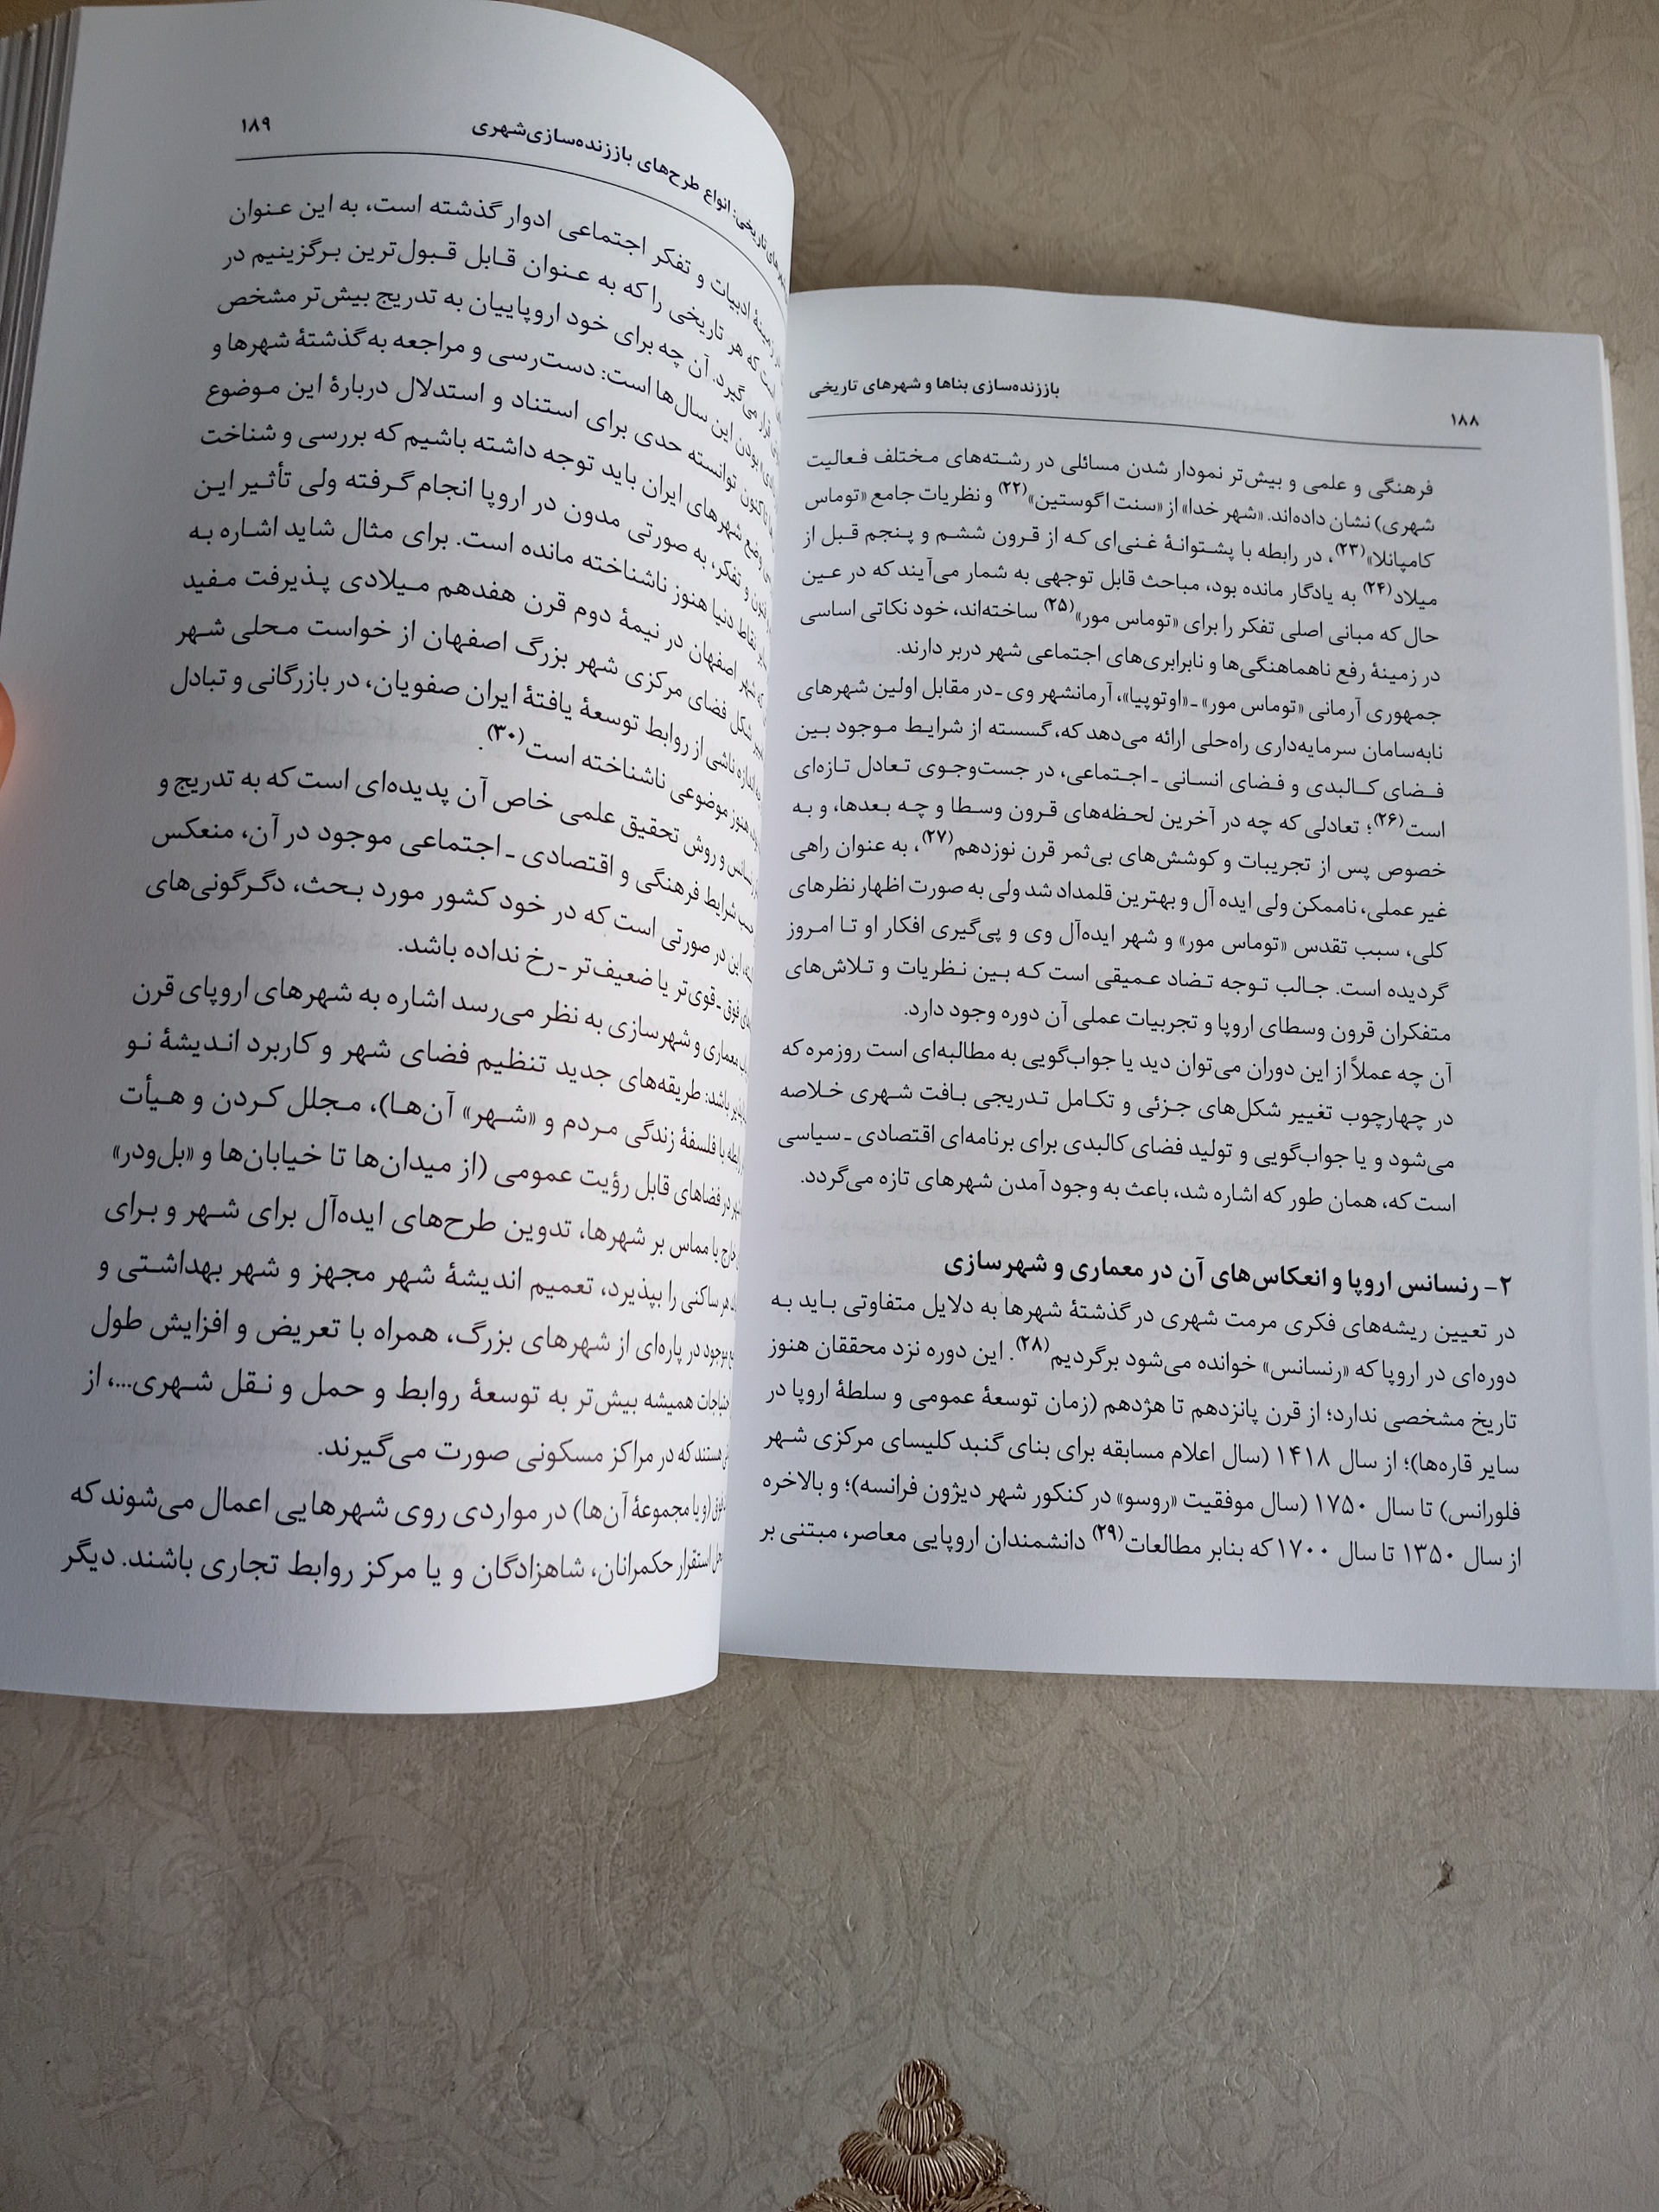 ۱۸۸
باززنده‌سازی بناها و شهرهای تاریخی
فرهنگی و علمی و بیش‌تر نمودار شدن مسائلی در رشته‌های مختلف فعالیت
شهری) نشان داده‌اند. «شهر خدا» از «سنت اگوستین»(۲۲) و نظریات جامع «توماس
کامپانلا»(۲۳)، در رابطه با پشتوانهٔ غنی‌ای که از قرون ششم و پنجم قبل از
میلاد(۲۴) به یادگار مانده بود، مباحث قابل توجهی به شمار می‌آیند که در عین
حال که مبانی اصلی تفکر را برای «توماس مور»(۲۵) ساخته‌اند، خود نکاتی اساسی
در زمینهٔ رفع ناهماهنگی‌ها و نابرابری‌های اجتماعی شهر دربر دارند.
جمهوری آرمانی «توماس مور» ـ «اوتوپیا»، آرمانشهر وی ـ در مقابل اولین شهرهای
نابه‌سامان سرمایه‌داری راه‌حلی ارائه می‌دهد که، گسسته از شرایط موجود بین
فضای کالبدی و فضای انسانی ـ اجتماعی، در جست‌وجوی تعادل تازه‌ای
است(۲۶)؛ تعادلی که چه در آخرین لحظه‌های قرون وسطا و چه بعدها، و به
خصوص پس از تجربیات و کوشش‌های بی‌ثمر قرن نوزدهم(۲۷)، به عنوان راهی
غیر عملی، ناممکن ولی ایده آل و بهترین قلمداد شد ولی به صورت اظهار نظرهای
کلی، سبب تقدس «توماس مور» و شهر ایده‌آل وی و پی‌گیری افکار او تا امروز
گردیده است. جالب توجه تضاد عمیقی است که بین نظریات و تلاش‌های
متفکران قرون وسطای اروپا و تجربیات عملی آن دوره وجود دارد.
آن چه عملاً از این دوران می‌توان دید یا جواب‌گویی به مطالبه‌ای است روزمره که
در چهارچوب تغییر شکل‌های جزئی و تکامل تدریجی بافت شهری خلاصه
می‌شود و یا جواب‌گویی و تولید فضای کالبدی برای برنامه‌ای اقتصادی ـ سیاسی
است که، همان طور که اشاره شد، باعث به وجود آمدن شهرهای تازه می‌گردد.
۲- رنسانس اروپا و انعکاس‌های آن در معماری و شهرسازی
در تعیین ریشه‌های فکری مرمت شهری در گذشتهٔ شهرها به دلایل متفاوتی باید به
دوره‌ای در اروپا که «رنسانس» خوانده می‌شود برگردیم(۲۸). این دوره نزد محققان هنوز
تاریخ مشخصی ندارد؛ از قرن پانزدهم تا هژدهم (زمان توسعهٔ عمومی و سلطهٔ اروپا در
سایر قاره‌ها)؛ از سال ۱۴۱۸ (سال اعلام مسابقه برای بنای گنبد کلیسای مرکزی شهر
فلورانس) تا سال ۱۷۵۰ (سال موفقیت «روسو» در کنکور شهر دیژون فرانسه)؛ و بالاخره
از سال ۱۳۵۰ تا سال ۱۷۰۰ که بنابر مطالعات(۲۹) دانشمندان اروپایی معاصر، مبتنی بر
تاریخی: انواع طرح‌های باززنده‌سازی‌شهری
۱۸۹
زمینهٔ ادبیات و تفکر اجتماعی ادوار گذشته است، به این عنوان
است که هر تاریخی را که به عنوان قابل قبول‌ترین برگزینیم در
قرار می‌گیرد. آن چه برای خود اروپاییان به تدریج بیش‌تر مشخص
بودن این سال‌ها است: دست‌رسی و مراجعه به گذشتهٔ شهرها و
تاکنون توانسته حدی برای استناد و استدلال دربارهٔ این موضوع
وضع شهرهای ایران باید توجه داشته باشیم که بررسی و شناخت
فنون و تفکر، به صورتی مدون در اروپا انجام گرفته ولی تأثیر این
نقاط دنیا هنوز ناشناخته مانده است. برای مثال شاید اشاره به
شهر اصفهان در نیمهٔ دوم قرن هفدهم میلادی پذیرفت مفید
شکل فضای مرکزی شهر بزرگ اصفهان از خواست محلی شهر
اندازه ناشی از روابط توسعهٔ یافتهٔ ایران صفویان، در بازرگانی و تبادل
هنوز موضوعی ناشناخته است(۳۰).
و روش تحقیق علمی خاص آن پدیده‌ای است که به تدریج و
شرایط فرهنگی و اقتصادی ـ اجتماعی موجود در آن، منعکس
این در صورتی است که در خود کشور مورد بحث، دگرگونی‌های
فوق ـ قوی‌تر یا ضعیف‌تر ـ رخ نداده باشد.
معماری و شهرسازی به نظر می‌رسد اشاره به شهرهای اروپای قرن
باشد: طریقه‌های جدید تنظیم فضای شهر و کاربرد اندیشهٔ نو
با فلسفهٔ زندگی مردم و «شهر» آن‌ها)، مجلل کردن و هیأت
در فضاهای قابل رؤیت عمومی (از میدان‌ها تا خیابان‌ها و «بل‌ودر»
خارج یا مماس بر شهرها، تدوین طرح‌های ایده‌آل برای شهر و برای
هر ساکنی را بپذیرد، تعمیم اندیشهٔ شهر مجهز و شهر بهداشتی و
موجود در پاره‌ای از شهرهای بزرگ، همراه با تعریض و افزایش طول
احتیاجات همیشه بیش‌تر به توسعهٔ روابط و حمل و نقل شهری...، از
هستند که در مراکز مسکونی صورت می‌گیرند.
فوق (و یا مجموعهٔ آن‌ها) در مواردی روی شهرهایی اعمال می‌شوند که
محل استقرار حکمرانان، شاهزادگان و یا مرکز روابط تجاری باشند. دیگر